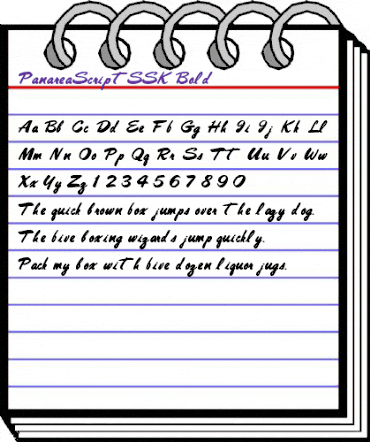 PanareaScript SSK Bold
Aa Bb Cc Dd Ee Ff Gg Hh Ii Jj Kk Ll
Mm Nn Oo Pp Qq Rr Ss Tt Uu Vv Ww
Xx Yy Zz 1 2 3 4 5 6 7 8 9 0
The quick brown fox jumps over the lazy dog.
The five boxing wizards jump quickly.
Pack my box with five dozen liquor jugs.